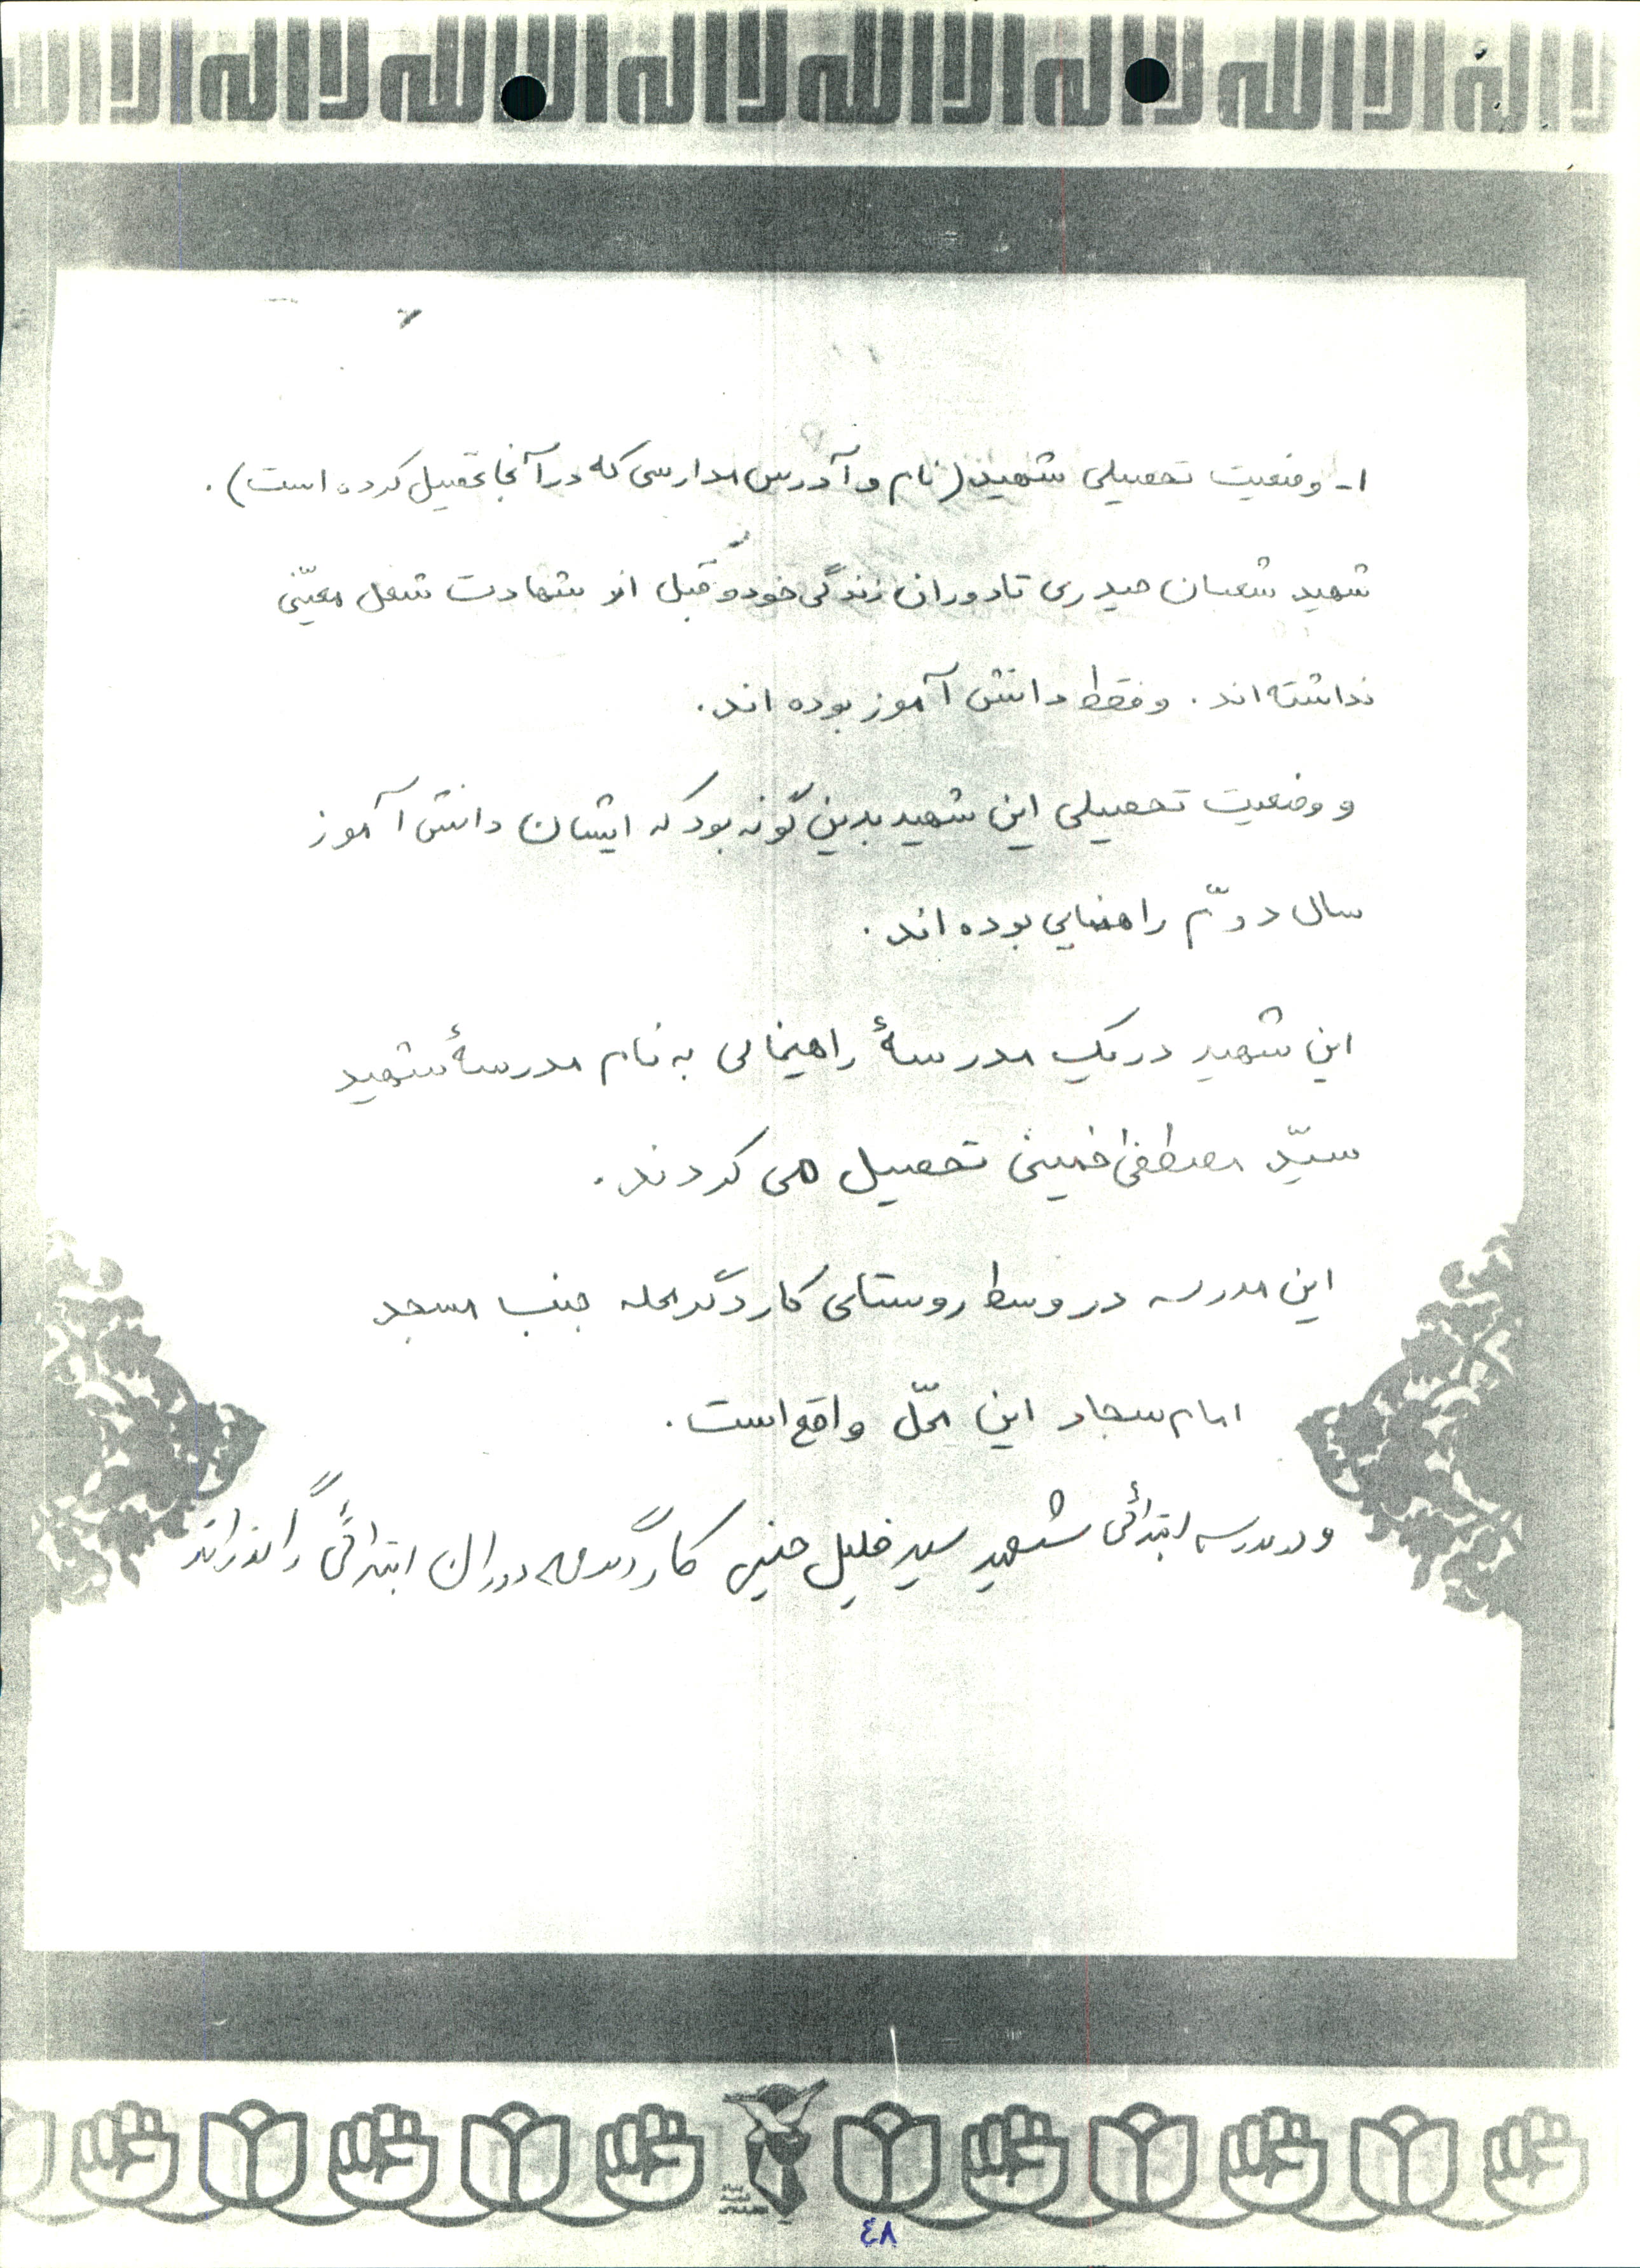 لا اله الا الله لا اله الا الله لا اله الا الله لا اله الا الله
۱- وضعیت تحصیلی شهید (نام و آدرس مدارسی که در آنجا تحصیل کرده است).
شهید شعبان حیدری تا دوران زندگی خود و قبل از شهادت شغل معیّنی
نداشته اند. و فقط دانش آموز بوده اند.
و وضعیت تحصیلی این شهید بدین گونه بود که ایشان دانش آموز
سال دوّم راهنمایی بوده اند.
این شهید در یک مدرسهٔ راهنمائی به نام مدرسهٔ شهید
سیّد مصطفی خمینی تحصیل می کردند.
این مدرسه در وسط روستای کاردگر محله جنب مسجد
امام سجاد این محلّ واقع است.
و در مدرسه ابتدائی شهید سید خلیل حسینی کاردگر محله دوران ابتدائی را گذراند
بنیاد شهید انقلاب اسلامی
٤٨